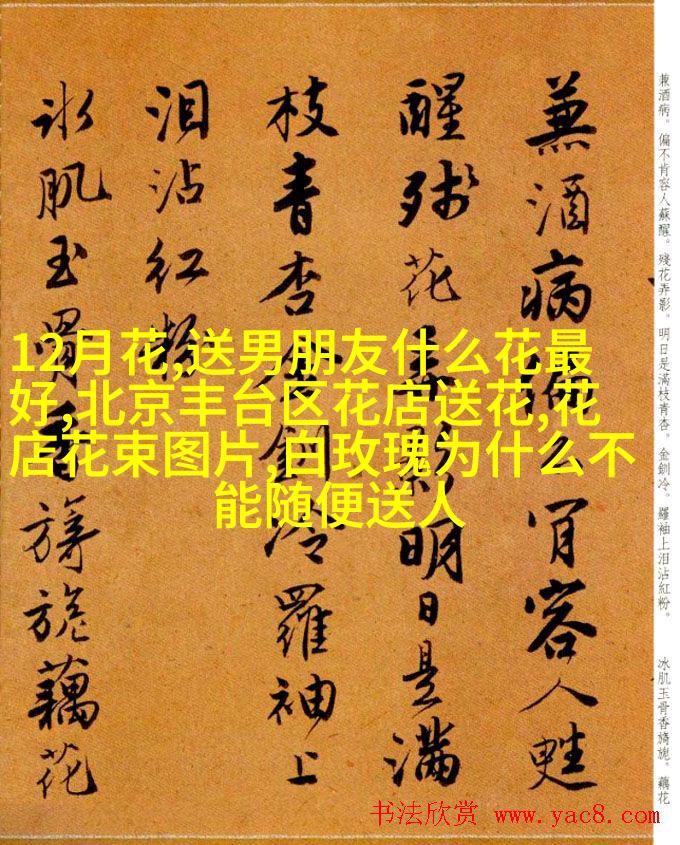 兼酒病。偏不肯容人蘇醒。殘花弄影。明日是滿枝青杏。金釧冷。羅袖上泪沾紅粉。 冰肌玉骨香旖旎。藕花
兼酒病偏不肯容人甦
醒殘花弄影明日是滿
枝青杏金釧冷羅袖上
泪沾紅粉
冰肌玉骨香旖旎藕花
12月花,送男朋友什么花最
好,北京丰台区花店送花,花
店花束图片,白玫瑰为什么不
能随便送人
书法欣赏 www.yac8.com